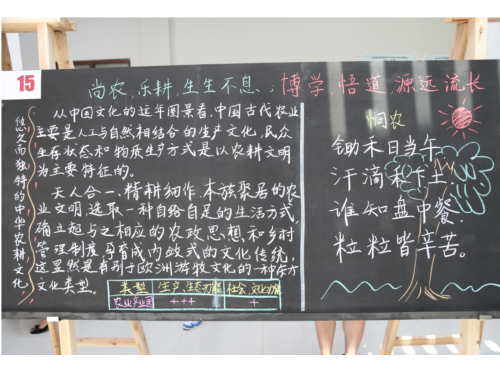 15
尚农,乐耕,生生不息;博学,悟道,源远流长
悠久而独特的中华农耕文化
从中国文化的远年图景看,中国古代农业
主要是人工与自然相结合的生产文化,民众
生存状态和物质生产方式是以农耕文明
为主要特征的。
天人合一、精耕细作,本族聚居的农
业文明,选取一种自给自足的生活方式,
确立起与之相应的农政思想和乡村
管理制度,孕育成内敛式的文化传统,
这显然是有别于欧洲游牧文化的一种东方
文化类型。
类型 生产、生态功能 社会、文化功能
农业产业园 +++ +
悯农
锄禾日当午
汗滴禾下土
谁知盘中餐
粒粒皆辛苦。